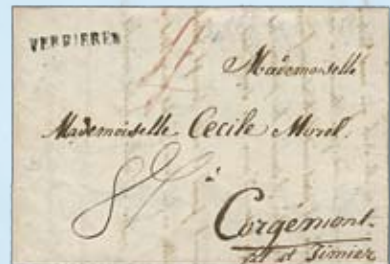 VERRIERES
Mademoiselle
Mademoiselle Cecile Morel.
à
Corgémont.
St Jimier